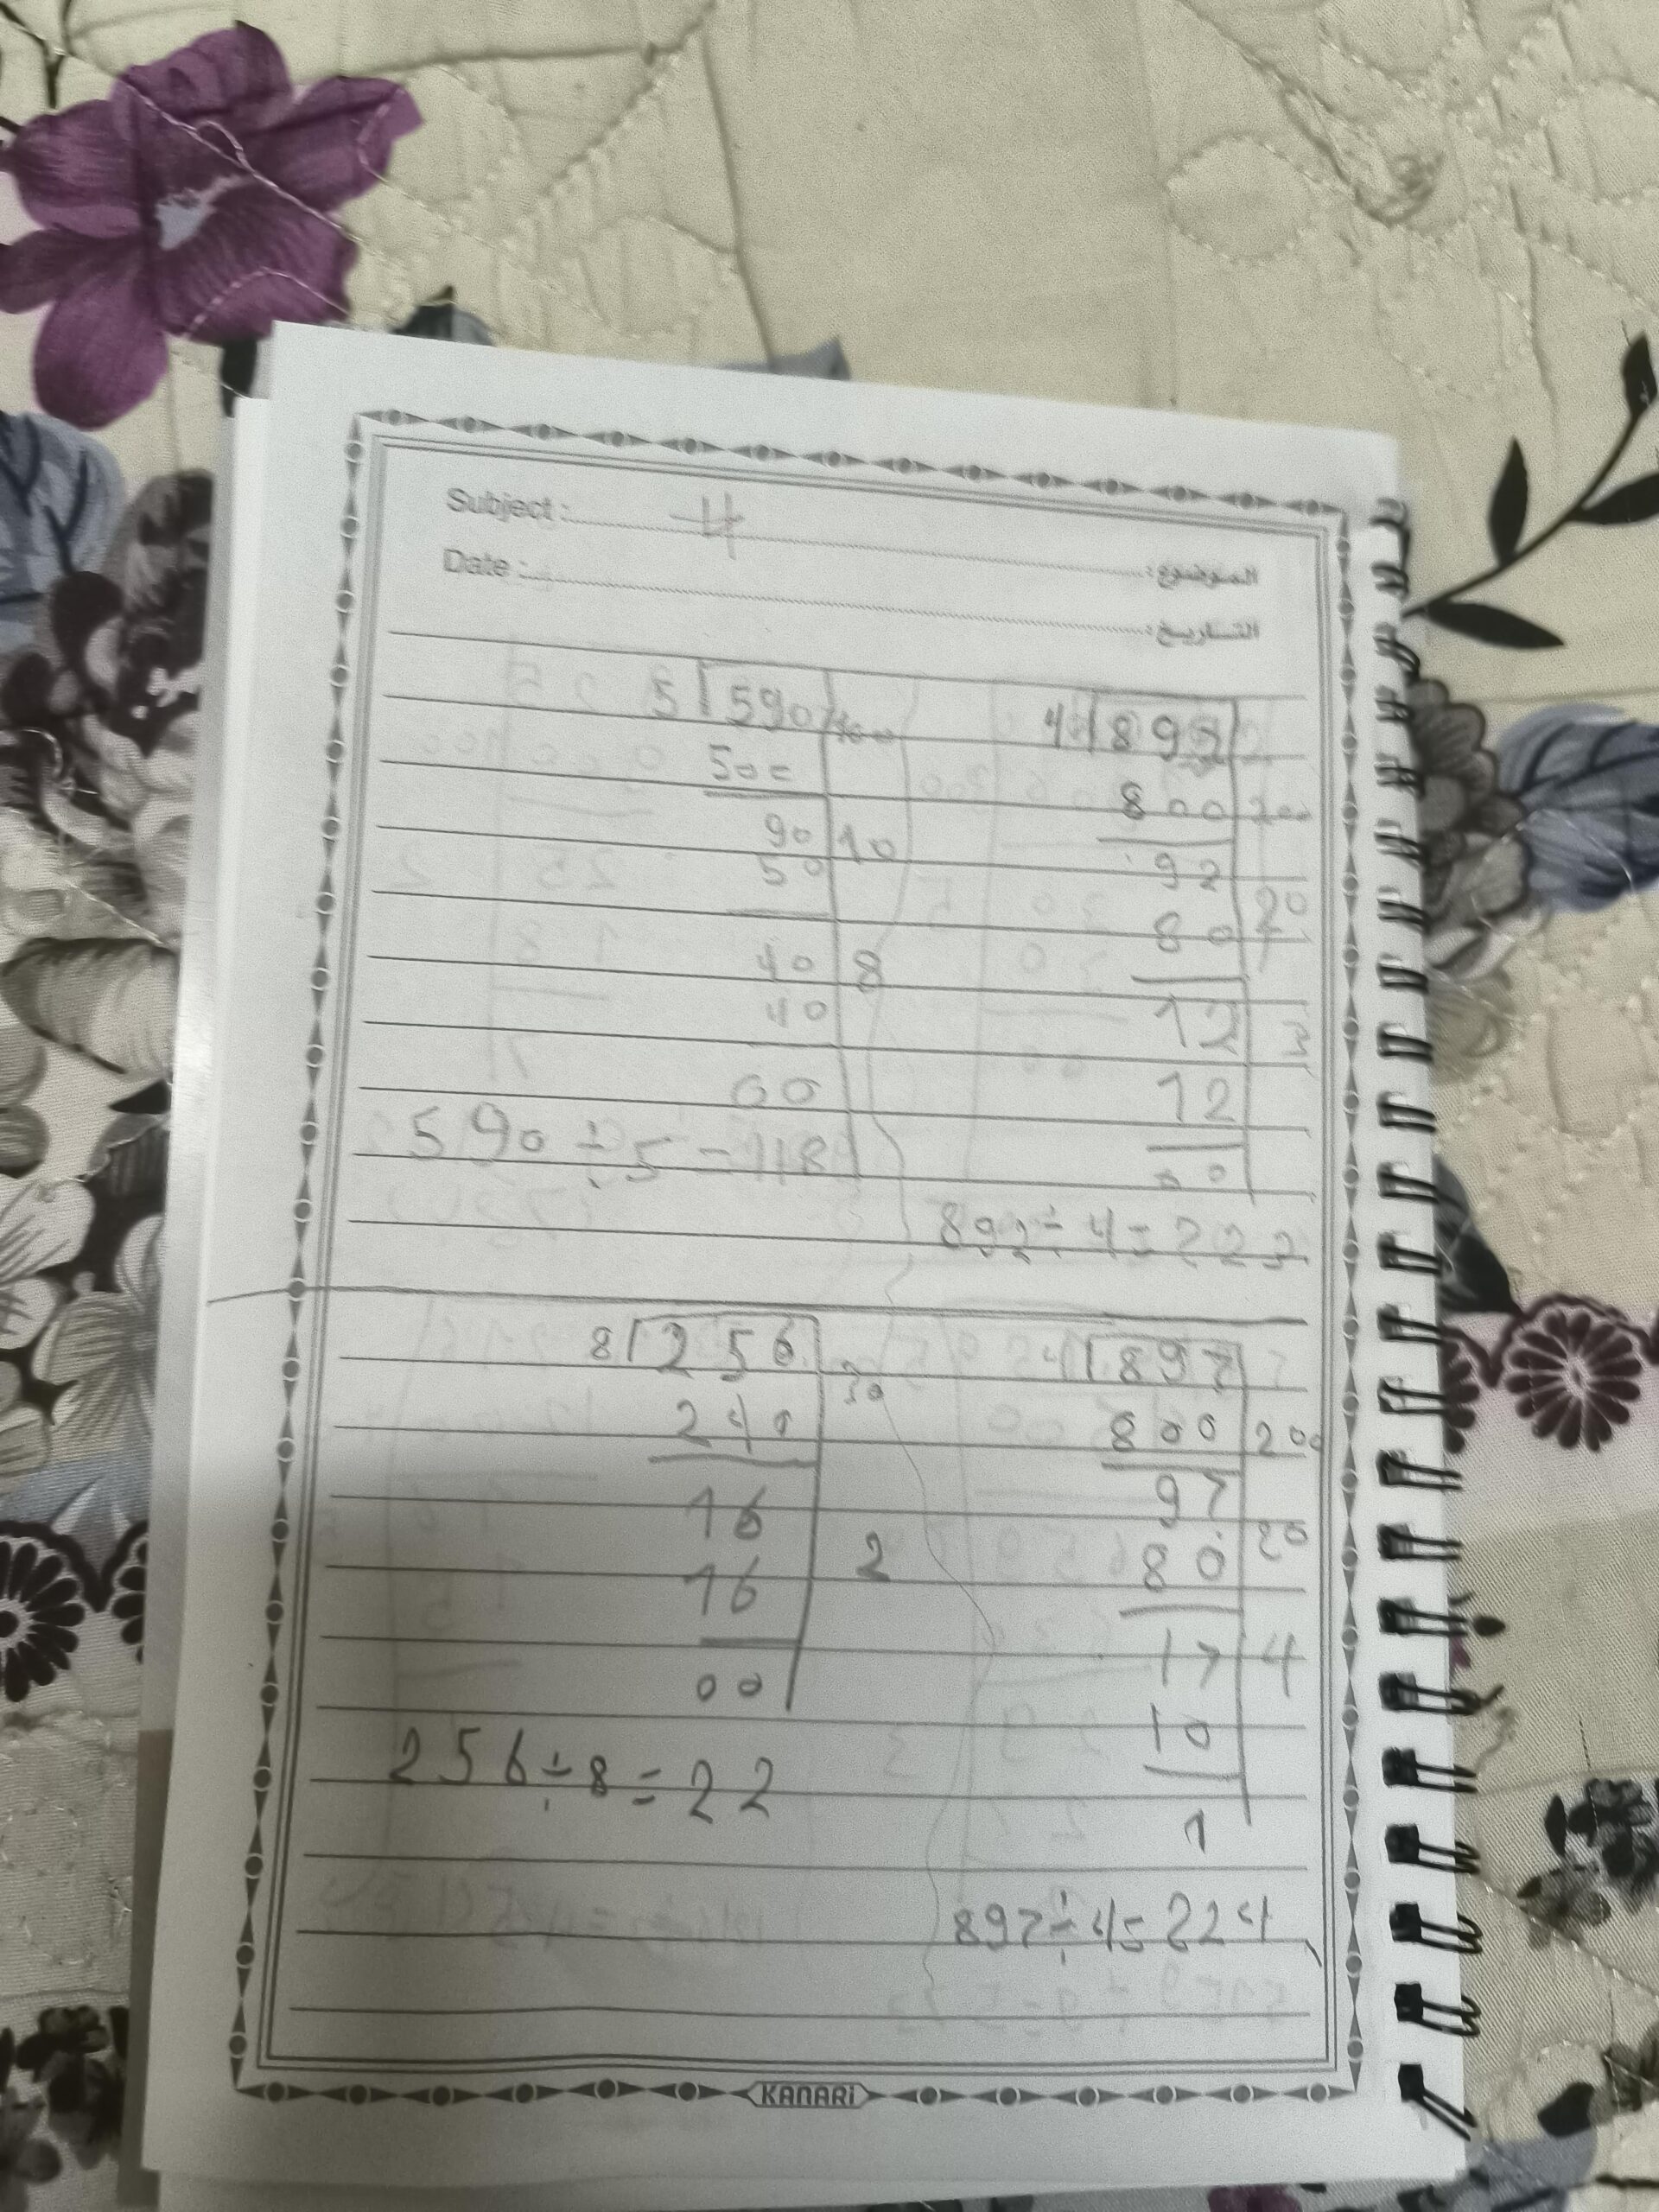 Subject : 4 الموضوع:
Date : التاريخ:
5 590 100
500
90 10
50
40 8
40
00
590 ÷ 5 = 118
4 892
800 200
92
80 20
12 3
12
00
892 ÷ 4 = 223
8 256 30
240
16
16 2
00
256 ÷ 8 = 22
4 897
800 200
97
80 20
17 4
16
1
897 ÷ 4 = 224
KANARI